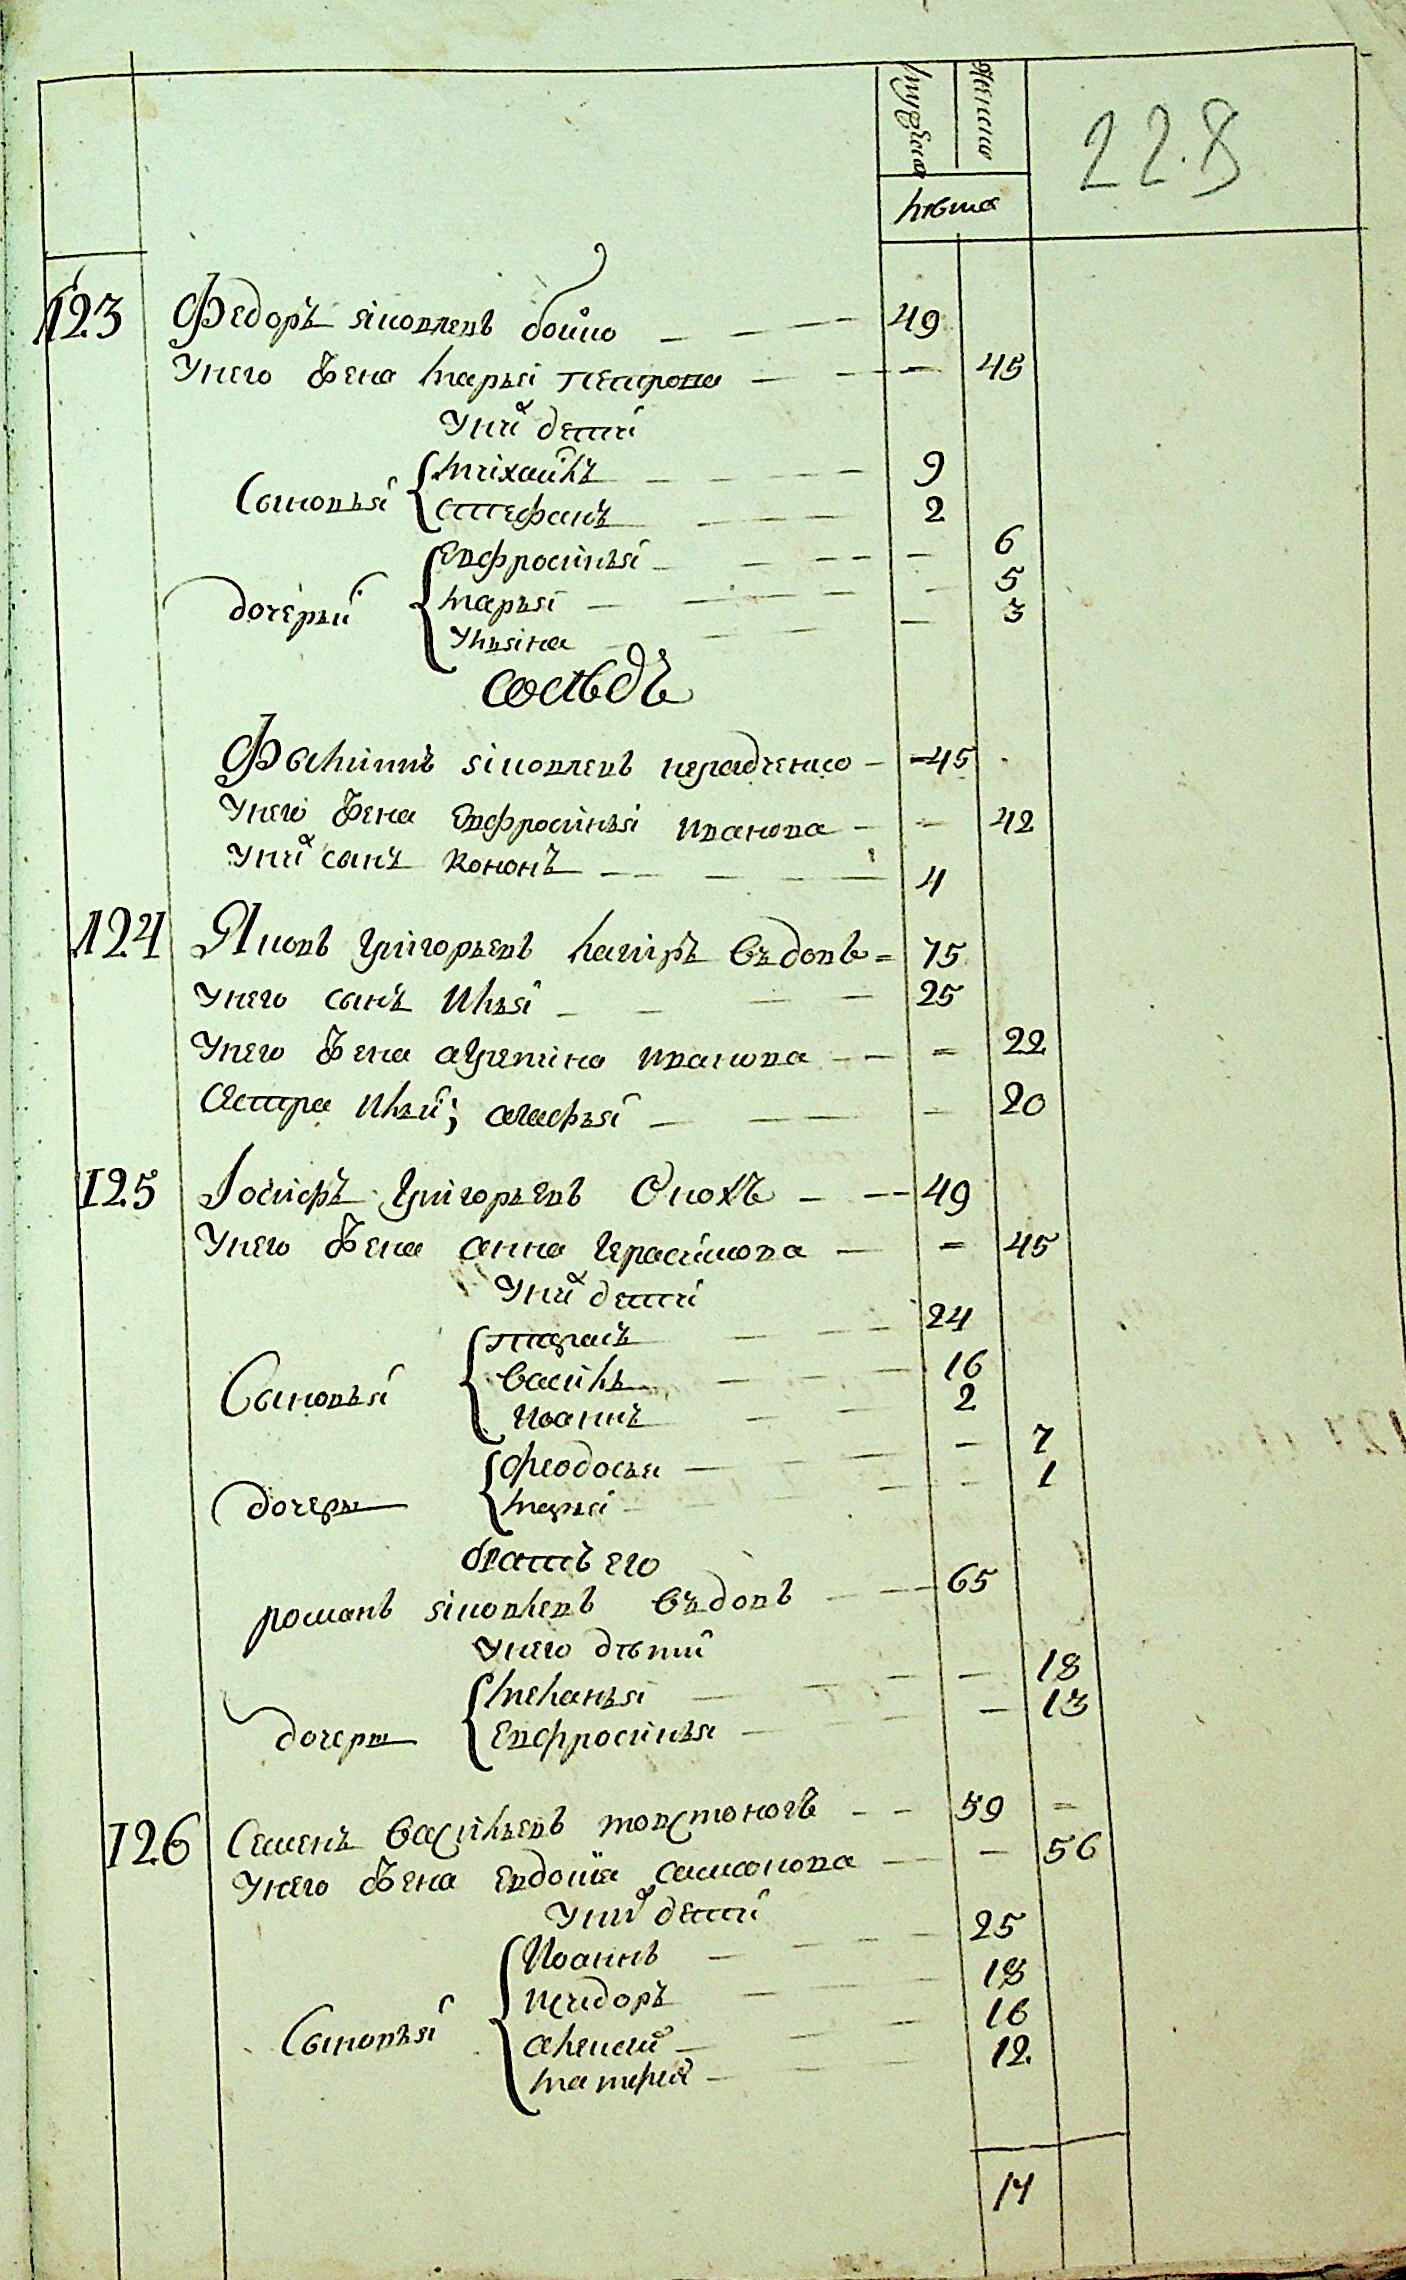 Мужеска Женска
лѣта
228
123 Федоръ яковлевъ бойко — — — 49
Унего жена марья петрова — — — 45
Уних дети
Сыновья { михаилъ — — — 9
стефанъ — — — 2
дочерьи { Евфросинья — — — — 6
марья — — — — 5
Ульяна — — — 3
сосѣдъ
Филиппъ яковлевъ нерадченко — — 45
Унего жена Евфросинья иванова — — 42
Уних сынъ кононъ — — — — 4
124 Яковъ григорьевъ въдовъ = 75
Унего сынъ илья — — — — 25
Унего жена агрепина иванова — — = 22
сестра ильи; агафья — — — — 20
125 Іосифъ григорьевъ — — 49
Унего жена анна герасимова — = 45
Уних дети
Сыновья { тарасъ — — — 24
василь — — — 16
Иоаннъ — — — 2
дочеры { феодосья — — — — 7
марья — — — — 1
братъ его
романъ яковлевъ въдовъ — — 65
Унего дѣти
дочеры { меланья — — — — 18
Евфросинья — — — — 13
126 Семенъ васильевъ товстоногъ — — 59 =
Унего жена Евдокия самсонова — — 56
Уних дети
Сыновья { Иоаннъ — — — — 25
исидоръ — — — 18
алексий — — — 16
матфей — — — 12
14